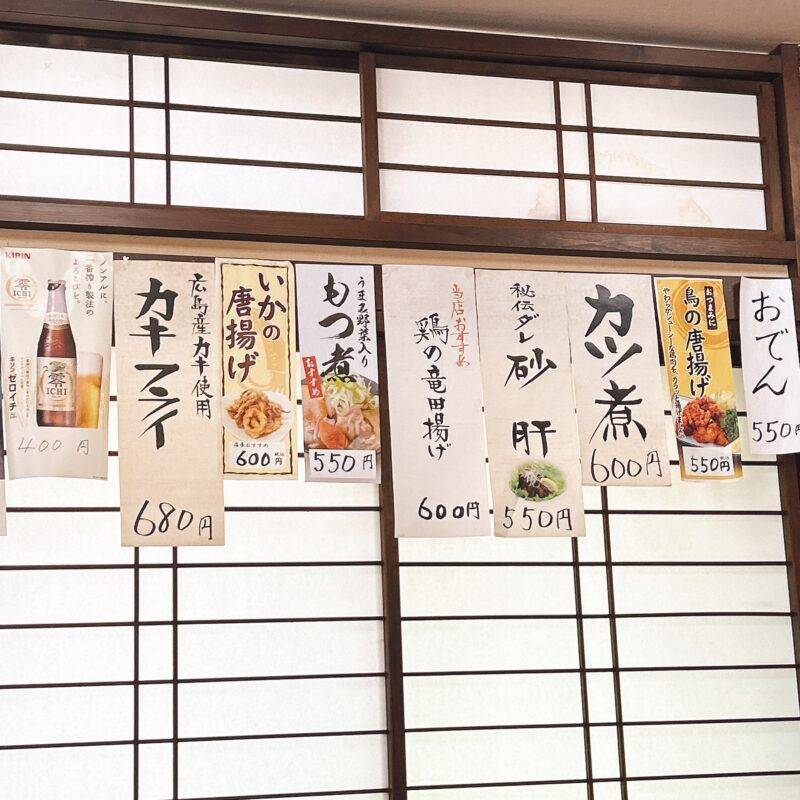 KIRIN
零
ICHI
ノンアルに、
一番搾り製法の
よろこびを。
零
ICHI
キリンゼロイチ
400円
広島産カキ使用
カキフライ
680円
いかの
唐揚げ
店長おすすめ
600円
税込
うま玉野菜入り
もつ煮
おすすめ
550円
当店おすすめ
鶏の竜田揚げ
600円
秘伝ダレ
砂肝
550円
カツ煮
600円
おつまみに
鳥の唐揚げ
550円
税込
おでん
550円